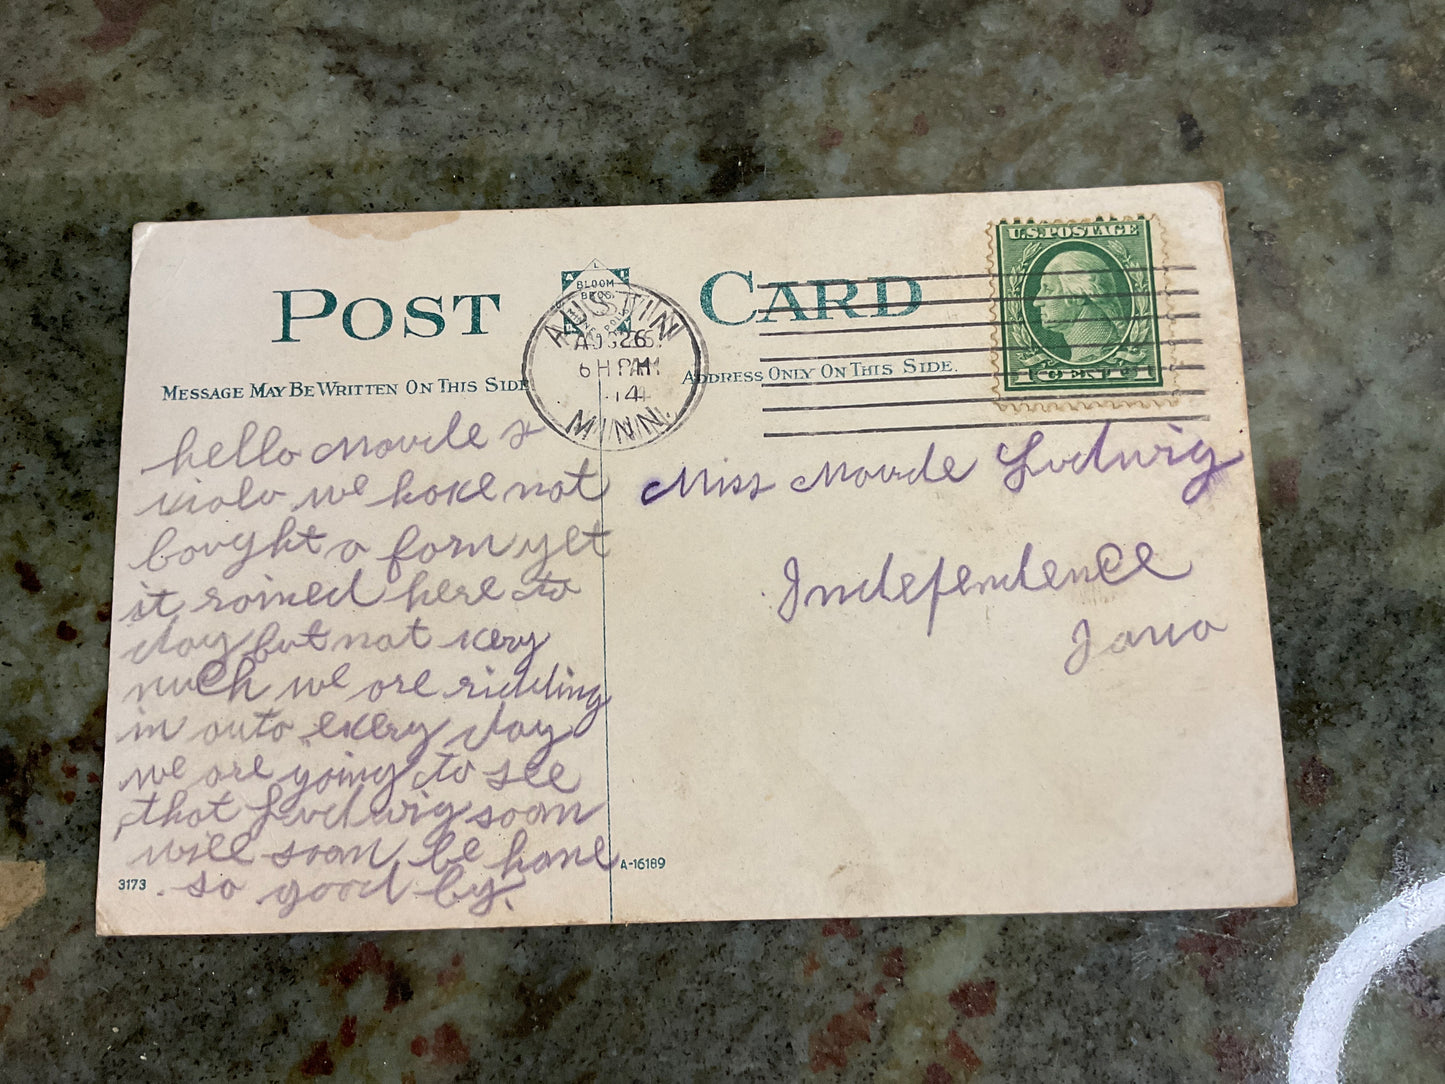 POST CARD
BLOOM
BROS.
AUSTIN
AUG 26
6 PM
14
MINN.
U.S. POSTAGE
1 CENT 1
MESSAGE MAY BE WRITTEN ON THIS SIDE
ADDRESS ONLY ON THIS SIDE.
hello Maude &
viola we have not
bought a farm yet
it rained here to
day but not very
much we are ridding
in auto every day
we are going to see
that Ludwig soon
will soon be home
so good by.
Miss Maude Ludwig
Independence
Iowa
3173
A-16189